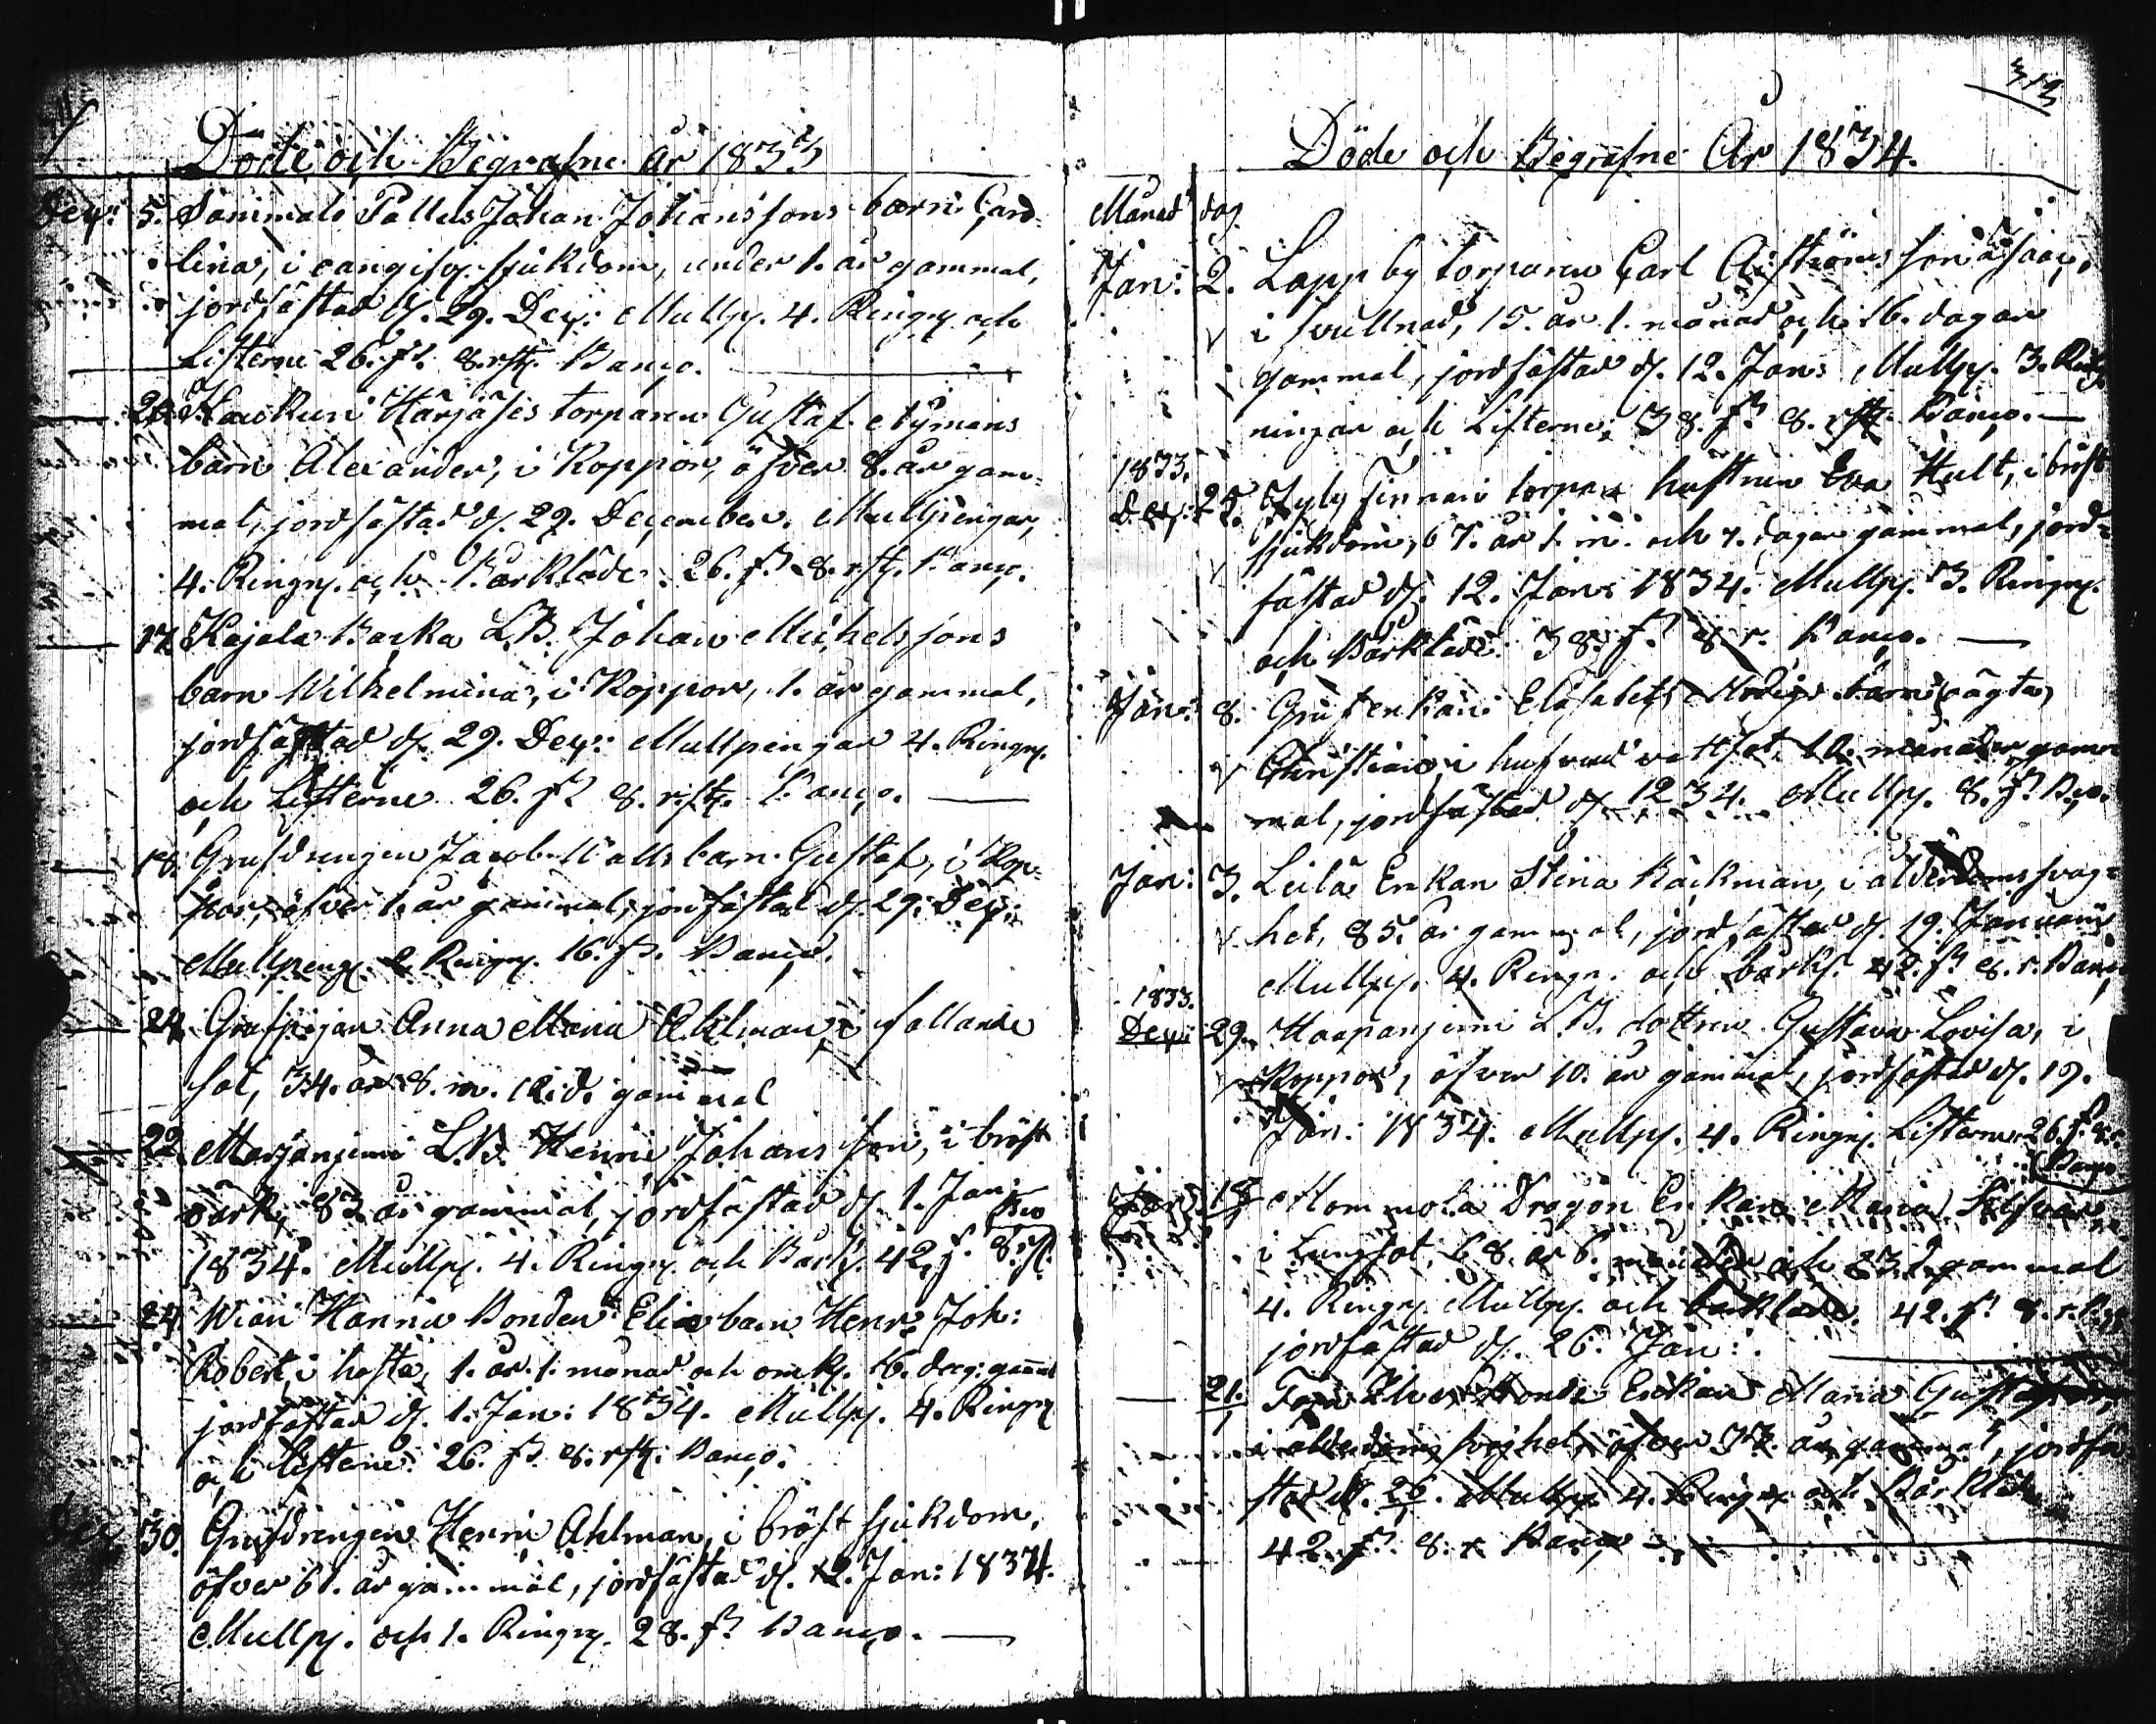 Döde och Begrafne År 1833
Dec: 5. Sammalo Pallus Johan Johanssons barn Caro-
lina, i oangifv. sjukdom, under 1. år gammal,
jordfästad d. 29. Dec: Mullp. 4. Ringn. och
Listerne 26. s. 8. rst. Banco.
Härjäsis torparen Gustaf Nymans
barn Alexander, i Koppor, öfver 8. år gam-
mal, jordfästad d. 29. December. Mullpengar,
4. Ringn. och Bårkläde 26. s. 8. rst. Banco.
17. Kojola Backa L.B. Johan Michelssons
barn Wilhelmina, i Koppor, 1. år gammal,
jordfästad d. 29. Dec: Mullpengar 4. Ringn.
och Listerne 26. s. 8. rst. Banco.
18. Grufdrengen Jacob Walls barn Gustaf, i Kop-
por, öfver 1. år gammal, jordfästad d. 29. Dec:
Mullpeng. Ringn. 16. s. Banco.
24. Grufpigan Anna Maria Ahlman, i fallande
sot, 34. år 8. m. 12. d. gammal
22. Marjaniemi L.B. Henric Johansson, i bröst
värk, 83. år gammal, jordfästad d. 1. Jan: Bco
1834. Mullp. 4. Ringn. och Bårk. 42. s. 8. rst.
24. Wiari Hannu Bonden Elias barn Henr. Joh:
Robert, i hosta, 1. år 1. månad och omkr. 16. dag: gamal
jordfästad d. 1. Jan: 1834. Mullp. 4. Ringn.
och Listerne 26. s. 8. rst. Banco.
Dec 30. Grufdrengen Henric Ahlman, i bröst sjukdom,
öfver 61. år gammal, jordfästad d. 12. Jan: 1834.
Mullp. och 1. Ringn. 28. s. Banco.
313
Döde och Begrafne År 1834.
Månad dag
Jan: 2. Lapp by torparen Carl Aiströms son
i svullnad, 15. år 1. månad och 16. dagar
gammal, jordfästad d. 12. Jan: Mullp. 3. Ring
ningar och Listerne, 38. s. 8. rst. Banco.
1833.
Dec: 25. Finnari torpar hustrun Eva Hult, i bröst
sjukdom, 67. år 1. m. och 7. dagar gammal, jord-
fästad d. 12. Jan: 1834. Mullp. 3. Ringn.
och Bårkläde 38. s. 8. r. Banco.
Jan: 8. Gruf enkan Elisabeth barn oägta
Christian, i hufvud vattsot, 10. månader gam-
mal, jordfästad d. 12 34. Mullp. 8. s. Bco.
Jan: 3. Leilä Enkan Stina Bäckman, i ålderdomssvag-
het, 85. år gammal, jordfästad d. 19. Januarii
Mullp. 4. Ringn. och bårk. 42. s. 8. r. Banco
1833.
Dec: 29. Haapaniemi L.B. dottren Gustava Lovisa, i
Koppor, öfver 10. år gammal, jordfästad d. 19.
Jan: 1834. Mullp. 4. Ringn. Listerne 26. s. 8. r.
Banco
Jan: 18 Mommola Dragon Enkan Maria
i Lungsot, 68. år 6. månader och 23. d. gammal
4. Ringn. Mullp. och bårkläde. 42. s. 8. r. Bco
jordfästad d. 26. Jan:
21. Bonde Enkan Maria
i ålderdoms svaghet, öfver år gammal, jordfä-
stad d. 26. Mullp. 4. Ringn. och Bårkläde
42. s. 8. r. Banco